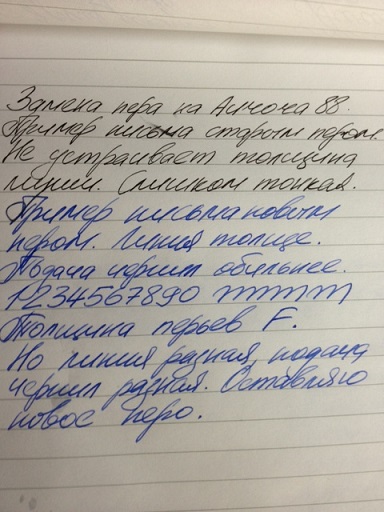 Замена пера на Аинока 88.
Пример письма старым пером.
Не устраивает толщина
линии. Слишком тонкая.
Пример письма новым
пером. Линия толще.
Подача чернил обильнее.
1234567890 mmmm
Толщина перьев F.
Но линия разная, подача
чернил разная. Оставляю
новое перо.